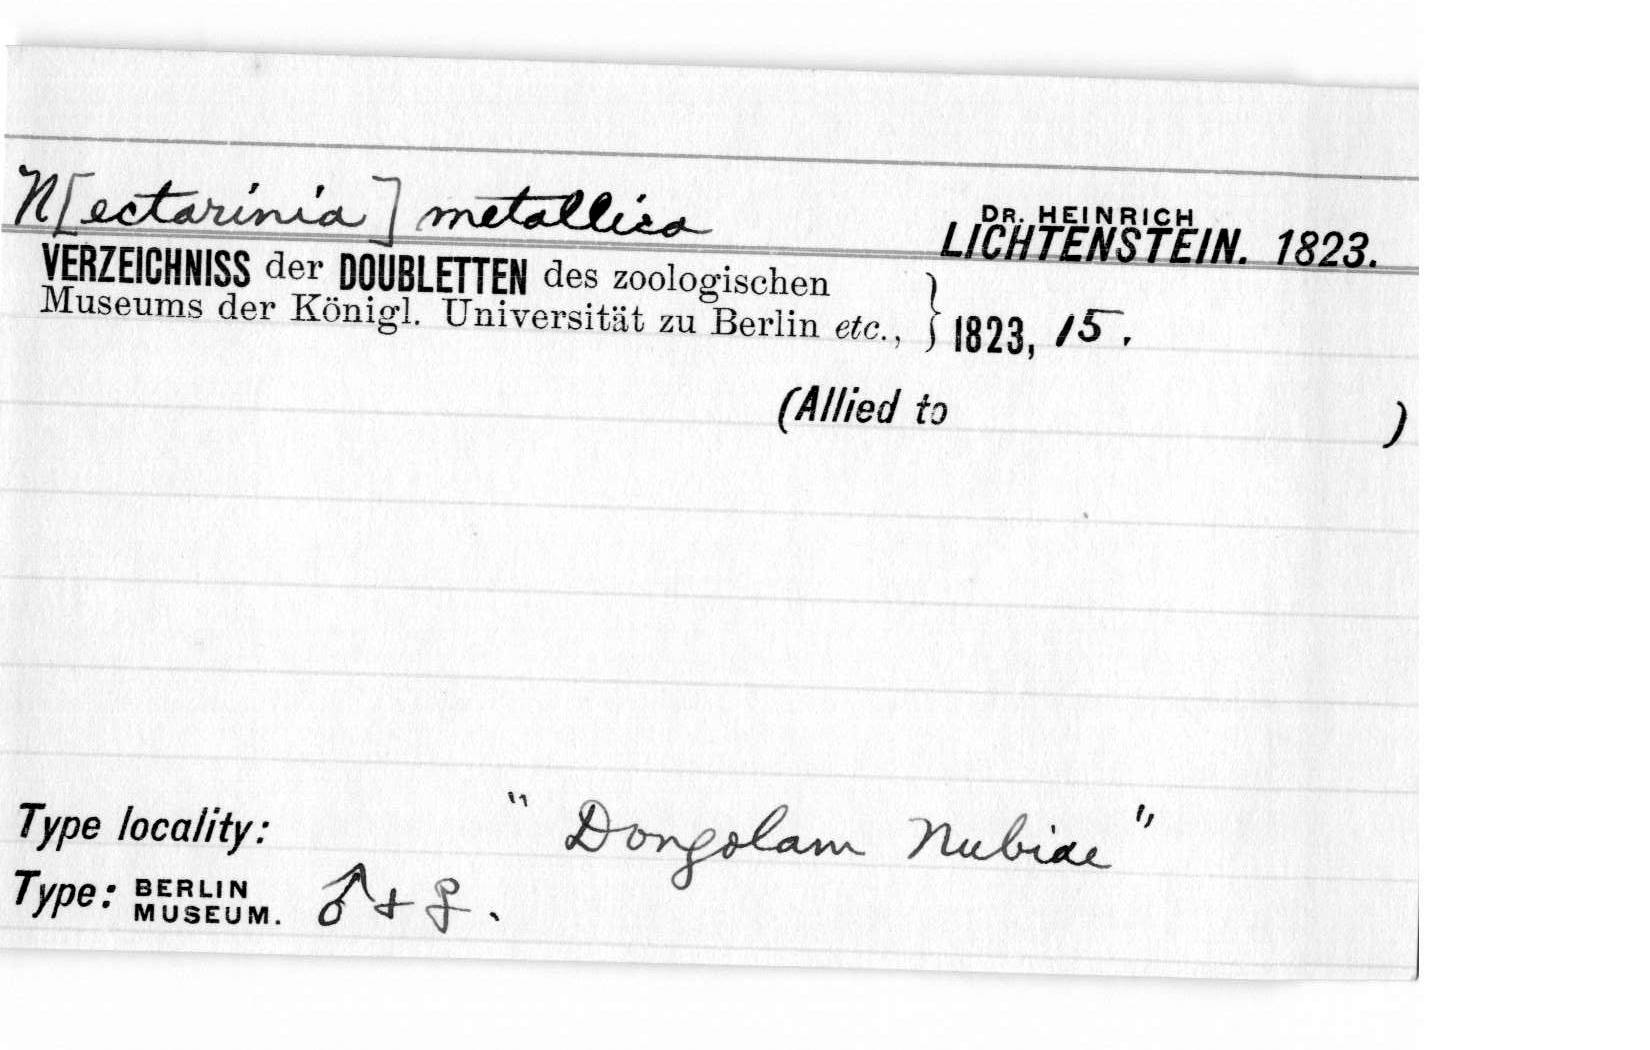 N[ectarinia] metallica
DR. HEINRICH
LICHTENSTEIN. 1823.
VERZEICHNISS der DOUBLETTEN des zoologischen
Museums der Königl. Universität zu Berlin etc., } 1823, 15.
(Allied to )
Type locality: "Dongolam Nubiae"
Type: BERLIN MUSEUM. ♂ + ♀.